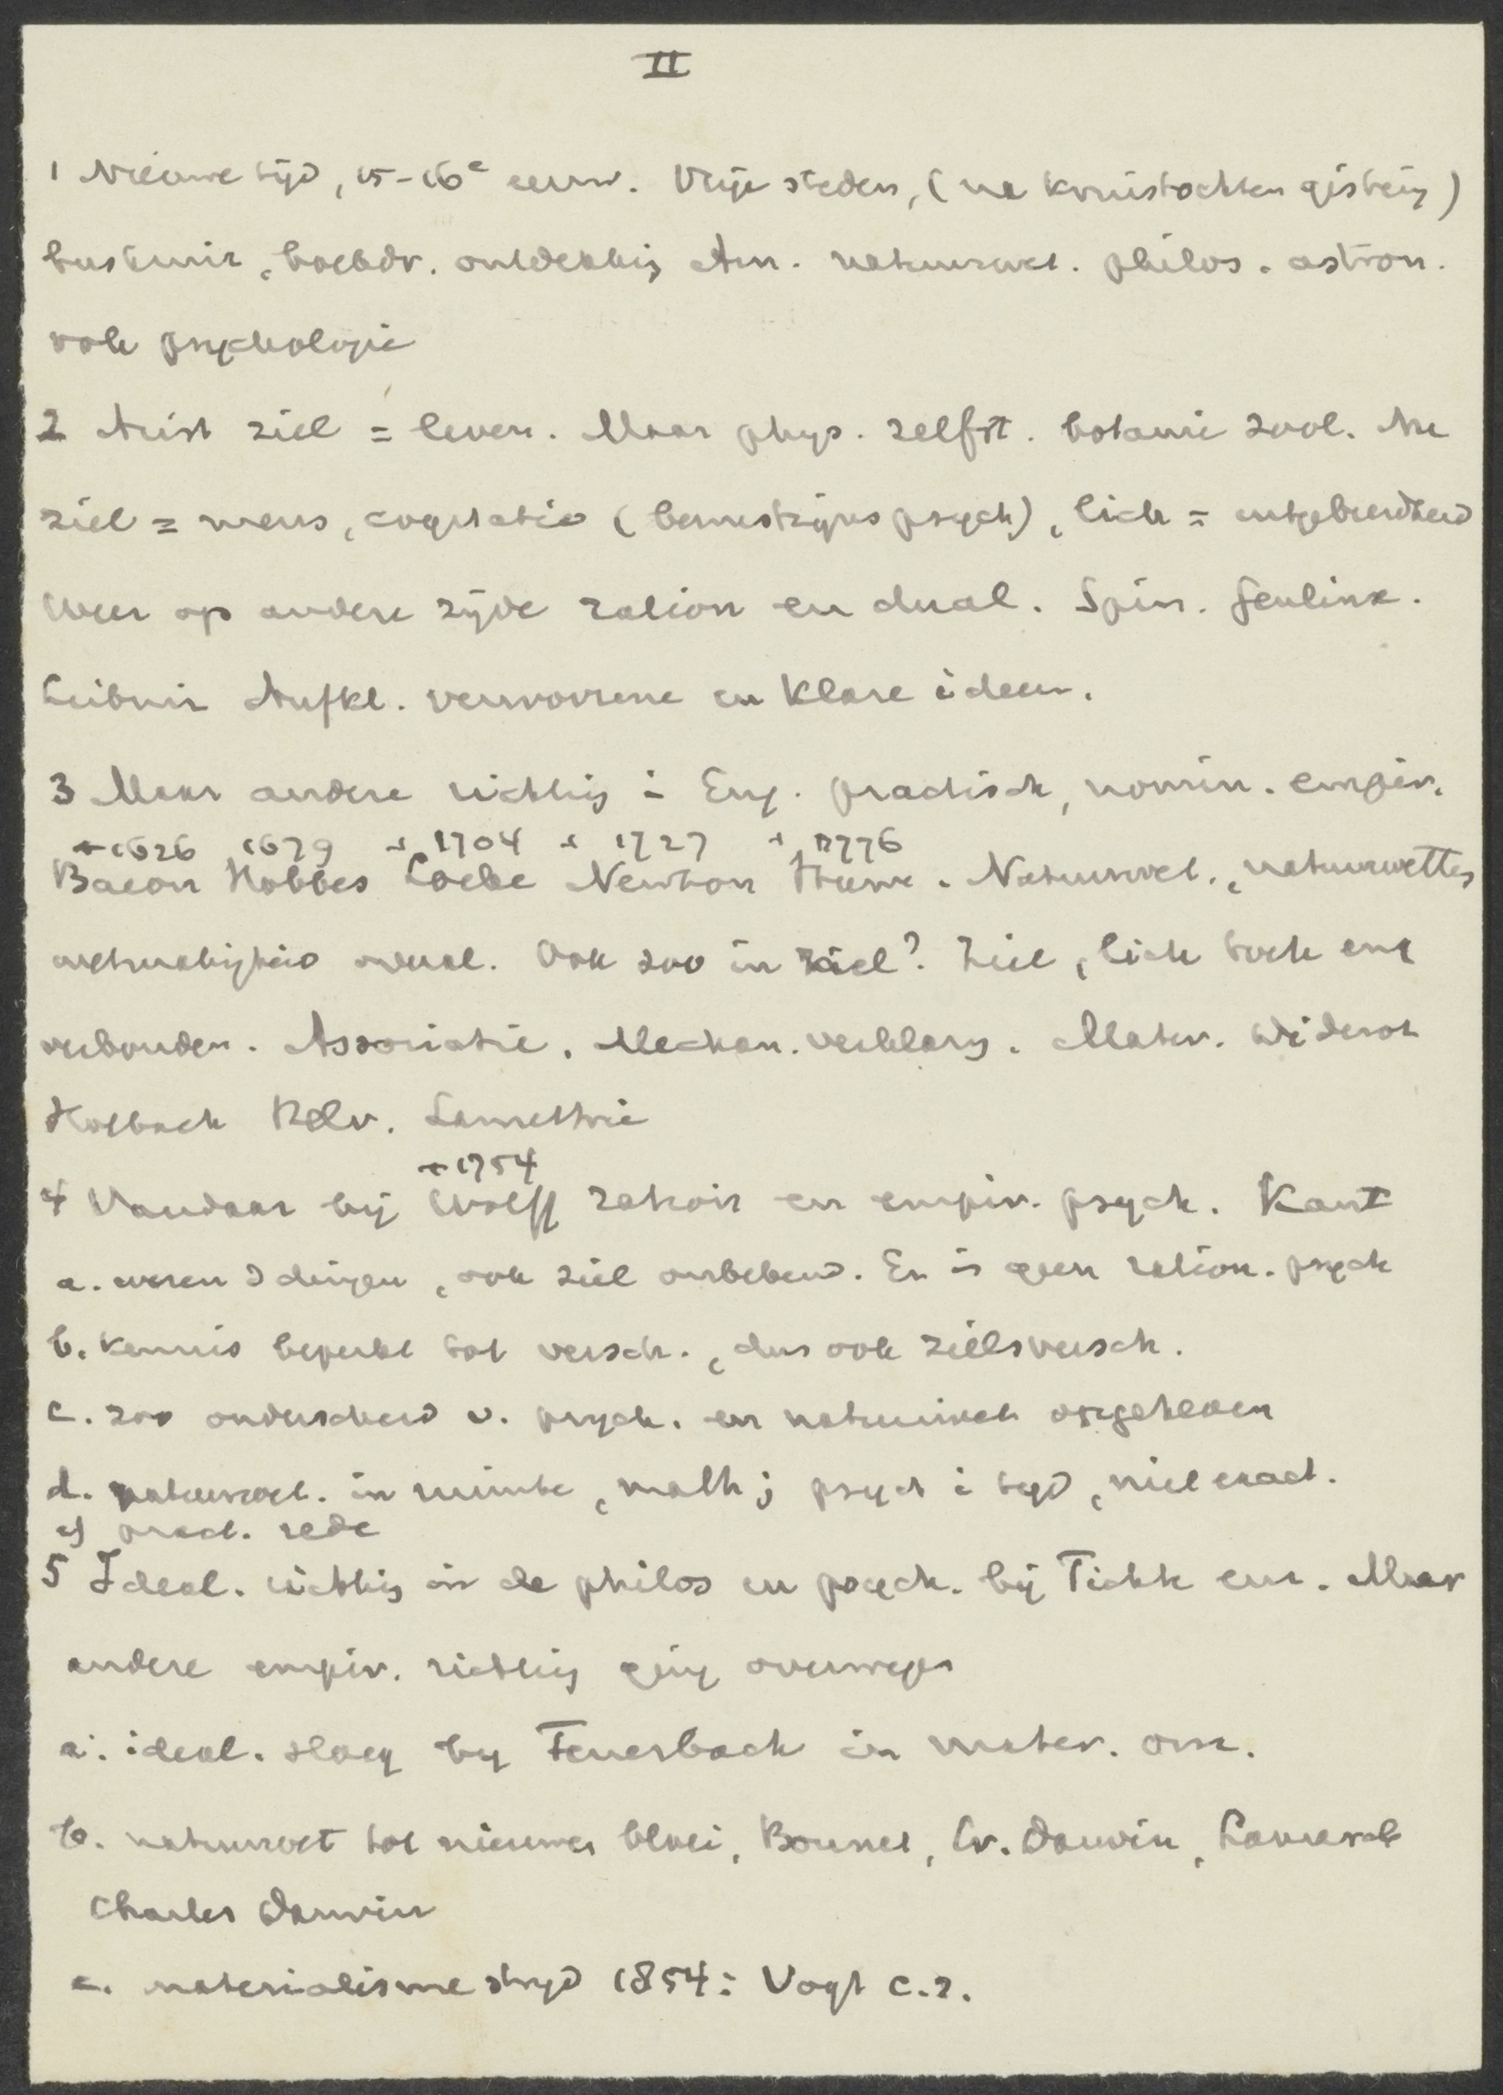 II
1 Nieuwe tijd, 15-16e eeuw. Vrije steden, (na kruistochten gisting)
buskruit, boekdr. ontdekking Am. natuurwet. philos. astron.
ook psychologie
2 Arist ziel = leven. Maar phys. zelfst. botanie zool. Nu
ziel = mens, cogitatio (bewustzijnspsych), lich = uitgebreidheid
Weer op andere zijde ration en dual. Spin. Geulinx.
Leibniz Aufkl. verworrene en klare ideeën.
3 Maar andere richting i Eng. practisch, nomin. empir.
+1626 1679 + 1704 + 1727 + 1776
Bacon Hobbes Locke Newton Hume. Natuurwet., natuurwetten
wetmatigheid overal. Ook zoo in ziel? Ziel, lich toch eng
verbonden. Associatie. Mechan. verklaring. Mater. Diderot
Holbach Helv. Lamettrie
+1754
4 Vandaar bij Wolff ration en empir. psych. Kant
a. wezen d dingen, ook ziel onbekend. Er is geen ration. psych
b. kennis beperkt tot versch., dus ook zielsversch.
c. zoo onderscheid v. psych. en natuurwet opgeheven
d. natuurwet. in ruimte, math; psych i tijd, niet exact.
e) pract. rede
5 Ideal. richting in de philos en psych. bij Fichte enz. Maar
andere empir. richting ging overwegen
a. ideal. sloeg by Feuerbach in mater. om.
b. natuurwet tot nieuwen bloei, Bonnet, Er. Darwin, Lamarck
Charles Darwin
c. materialisme stryd 1854: Vogt c.s.